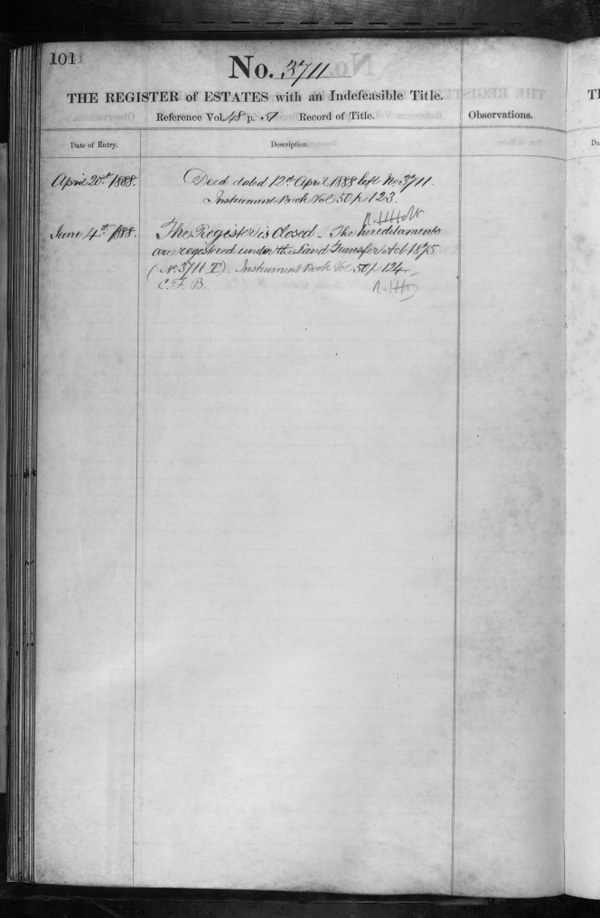 101
No. 3711
THE REGISTER of ESTATES with an Indefeasible Title.
Reference Vol. 48 p. 51 Record of Title.
Observations.
Date of Entry.
Description.
April 20th 1888.
Deed dated 12th April 1888 left No 3711.
Instrument Book Vol 50 p 123.
June 4th 1888.
The Register is closed - The hereditaments
are registered under the Land Transfer Act 1875
(No. 3711 T). Instrument Book Vol 50 p 124
C. F. B.